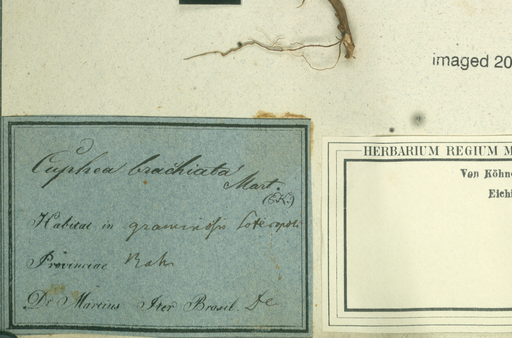 imaged 20
Cuphea brachiata
Mart.
(E.K.)
Habitat in graminosis
Provinciae Bah
Dr Martius Iter Brasil. De
HERBARIUM REGIUM M
Von Köhne
Eichl